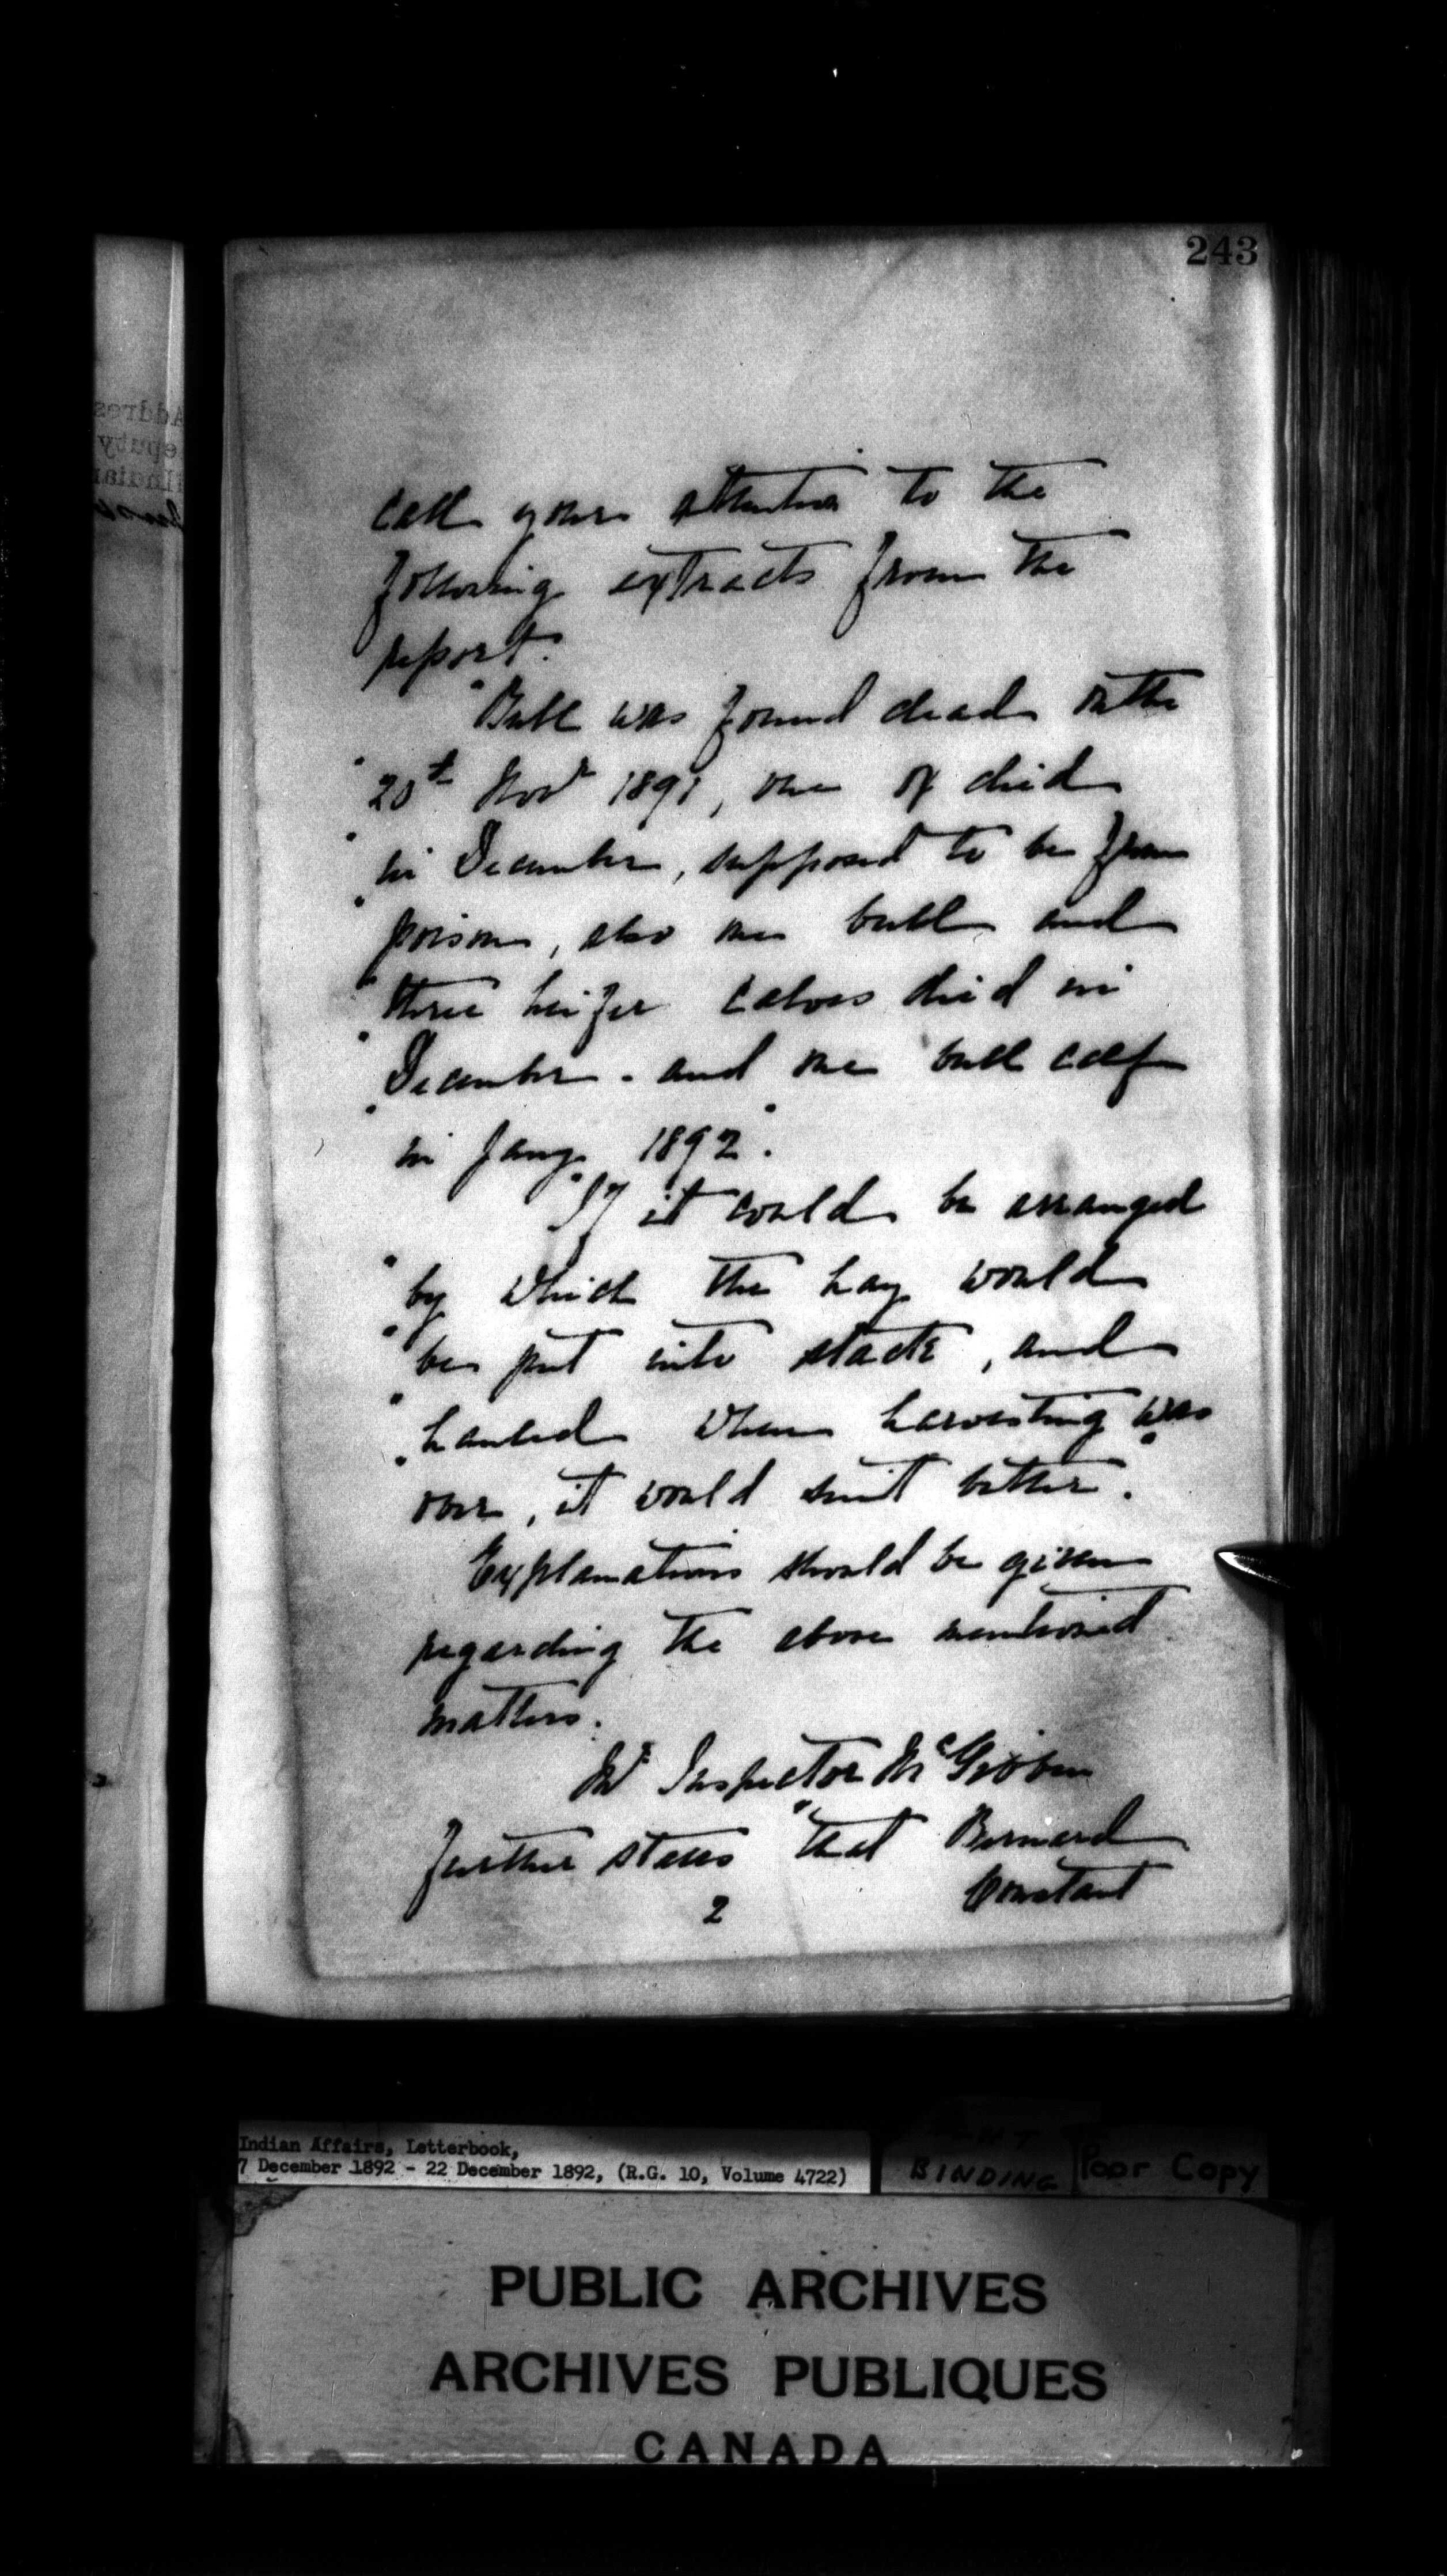 243
call your attention to the
following extracts from the
report.
"Bull was found dead on the
"20th Novr 1891, one ox died
"in December, supposed to be from
"poison, also one bull and
"three heifer calves died in
"December - and one bull calf
"in Jany 1892".
"If it could be arranged
"by which the hay would
"be put into stack, and
"hauled when harvesting was
"over, it would suit better".
Explanations should be given
regarding the above mentioned
matters.
Mr Inspector McGibbon
further states "that Bernard
Constant
2
Indian Affairs, Letterbook,
7 December 1892 - 22 December 1892, (R.G. 10, Volume 4722)
BINDING
Poor Copy
PUBLIC ARCHIVES
ARCHIVES PUBLIQUES
CANADA